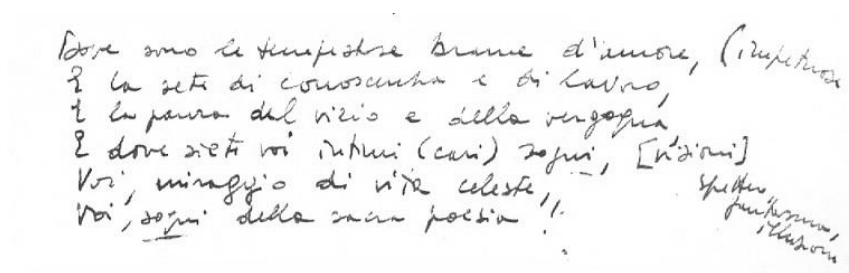 Dove sono le tempestose brame d'amore, (impetuose
E la sete di conoscenza e di lavoro,
E la paura del vizio e della vergogna,
E dove siete voi intimi (cari) sogni, [visioni]
Voi, miraggio di vita celeste,
Voi, sogni della sacra poesia!
spettro,
fantasma,
illusioni